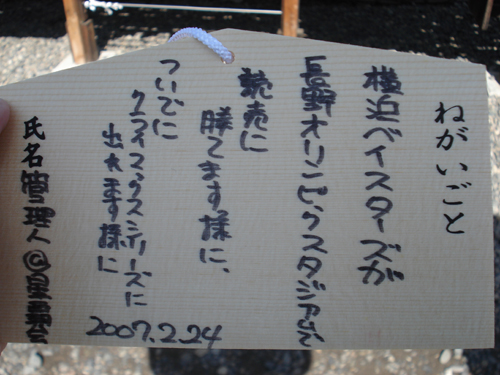 ねがいごと
横浜ベイスターズが
長野オリンピックスタジアムで
読売に
勝てます様に、
ついでに
クライマックスシリーズに
出れます様に
2007.2.24
氏名管理人@